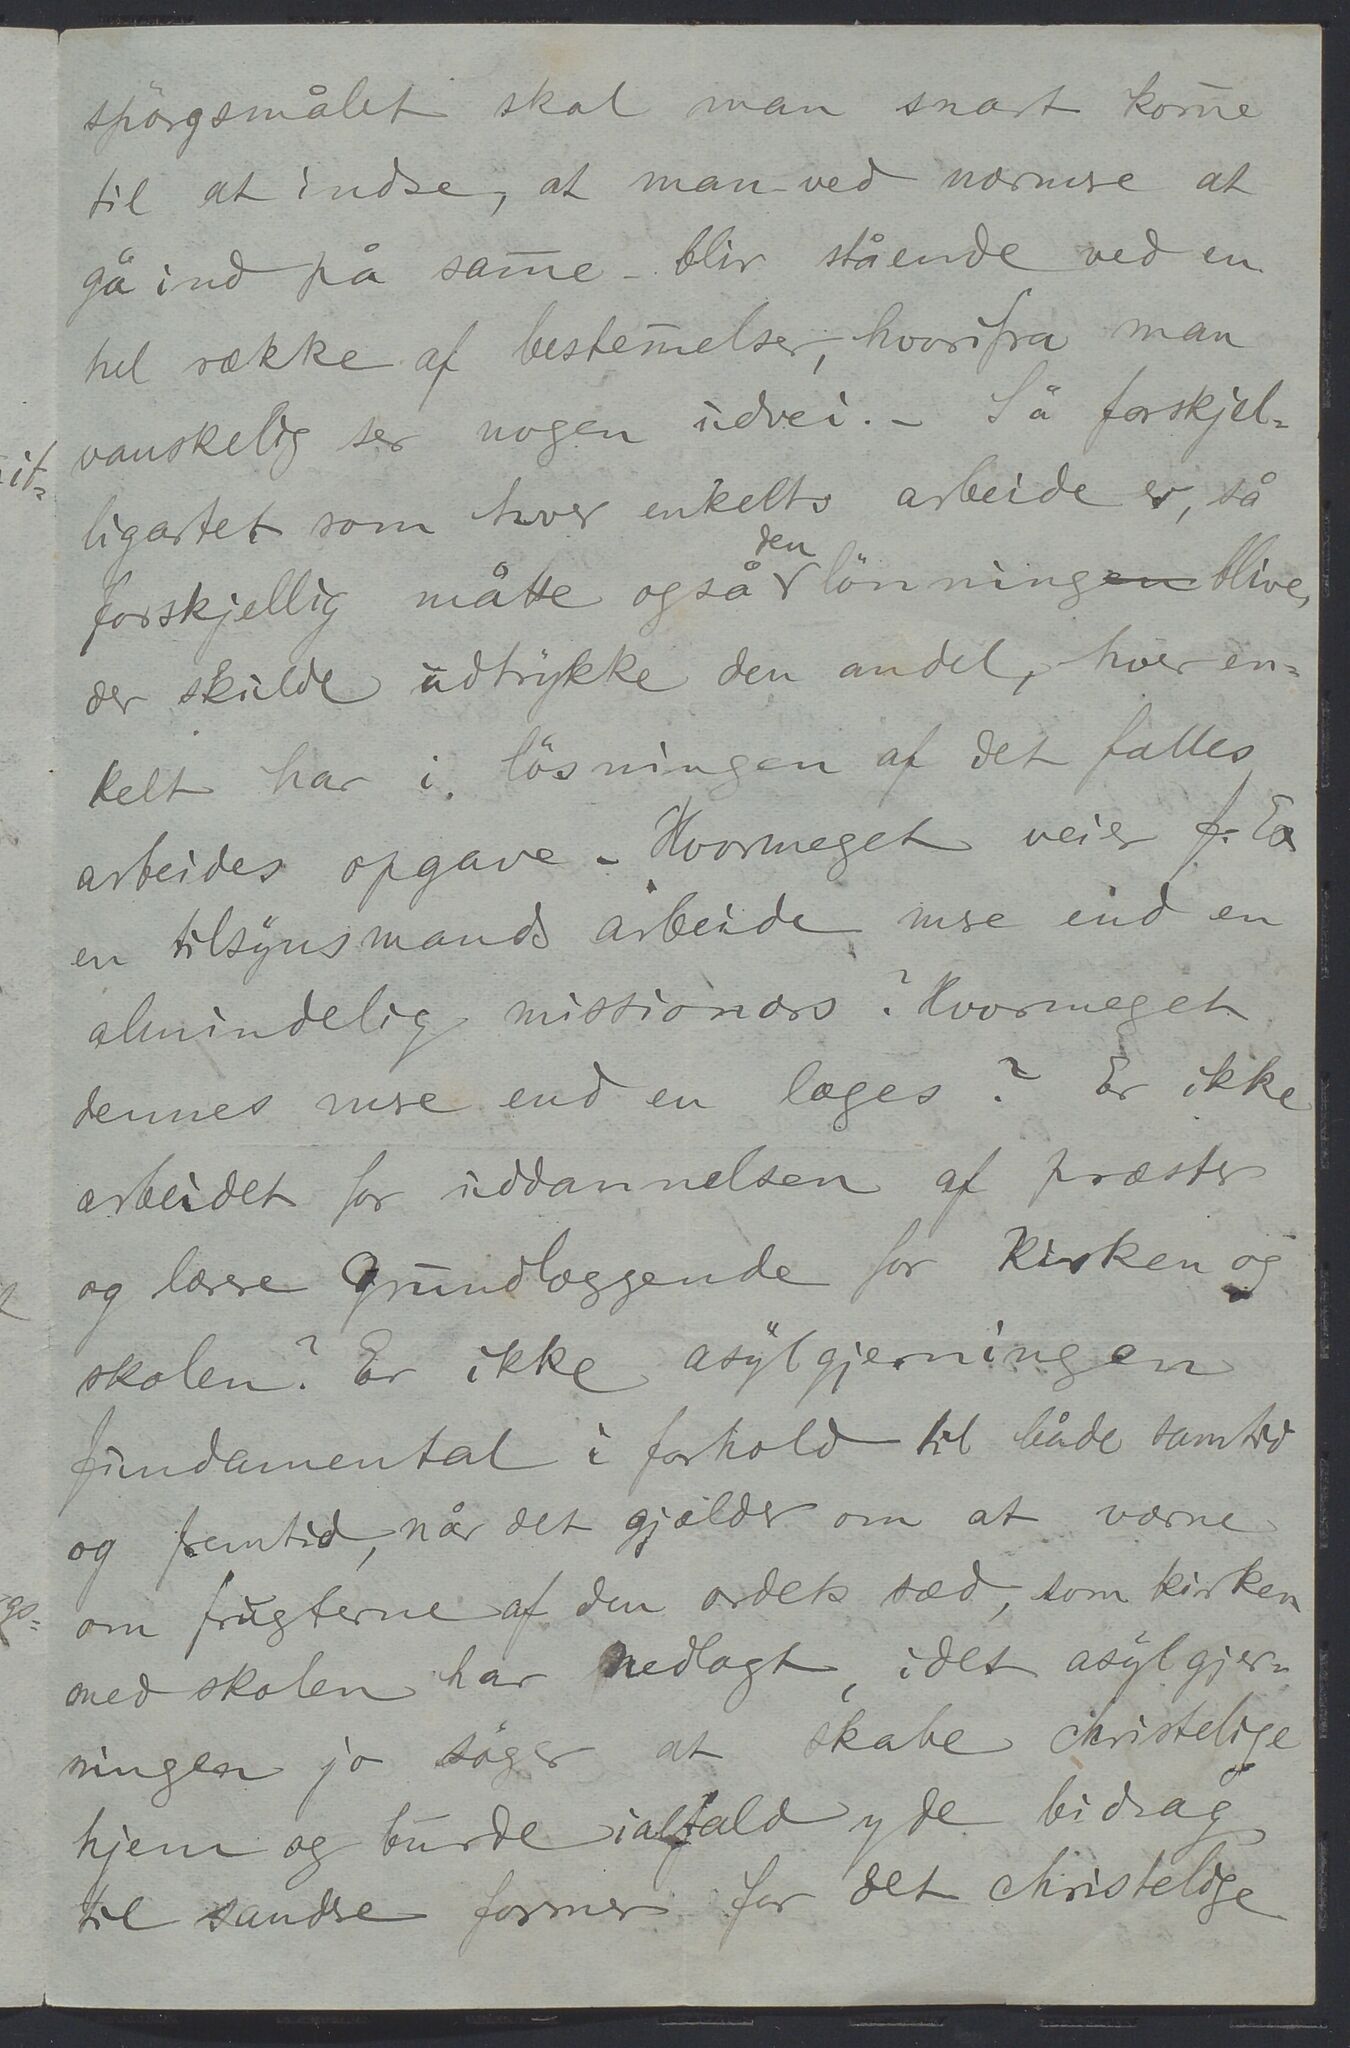 spörgsmålet skal man snart kom̅e
til at indse, at man ved nærmere at
gå ind på sam̅e - blir stående ved en
hel række af bestem̅elser, hvorifra man
vanskelig ser nogen udvei. - Så forskjel=
ligartet som hver enkelts arbeide er, så
den
forskjellig måtte også lönningen blive,
der skulde udtrykke den andel, hver en=
kelt har i lösningen af det fælles
arbeides opgave - Hvormeget veier f. Ex
en tilsynsmands arbeide mere end en
almindelig missionærs? Hvormeget
dennes mere end en læges? Er ikke
arbeidet for uddannelsen af præster
og lærere grundlæggende for kirken og
skolen? Er ikke asylgjerningen
fundamental i forhold til både samtid
og fremtid, når det gjælder om at værne
om frugterne af den ordets sæd, som kirken
med skolen har nedlagt, idet asylgjer=
ningen jo söger at skabe christelige
hjem og burde ialfald yde bidrag
til sandere former for det christelige